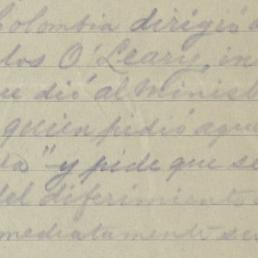 Colombia dirigió
los O'Leary, in
ue dió al Minis
quien pidió aque
da" y pide que se
del diferimiento
mediatamente se